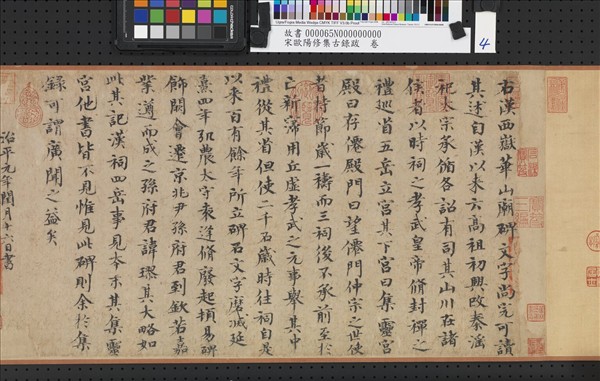 故書 000065N000000000
宋歐陽修集古錄跋 卷
4
右漢西嶽華山廟碑文字尚完可讀
其述自漢以來云高祖初興改秦淫
祀太宗承循各詔有司其山川在諸
侯者以時祠之孝武皇帝脩封禪之
禮巡省五岳立宮其下宮曰集靈宮
殿曰存僊殿門曰望僊門仲宗之世使
者持節歲一禱而三祠後不承前至於
亡新寖用丘虛孝武之元事舉其中
禮從其省但使二千石歲時往祠自是
以來百有餘年所立碑石文字磨滅延
熹四年弘農太守袁逢脩廢起頓易碑
飾闕會遷京兆尹孫府君到欽若嘉
業遵而成之孫府君諱璆其大略如
此其記漢祠四岳事見本末其集靈
宮他書皆不見惟見此碑則余於集
錄可謂廣聞之益矣
治平元年閏月十六日書